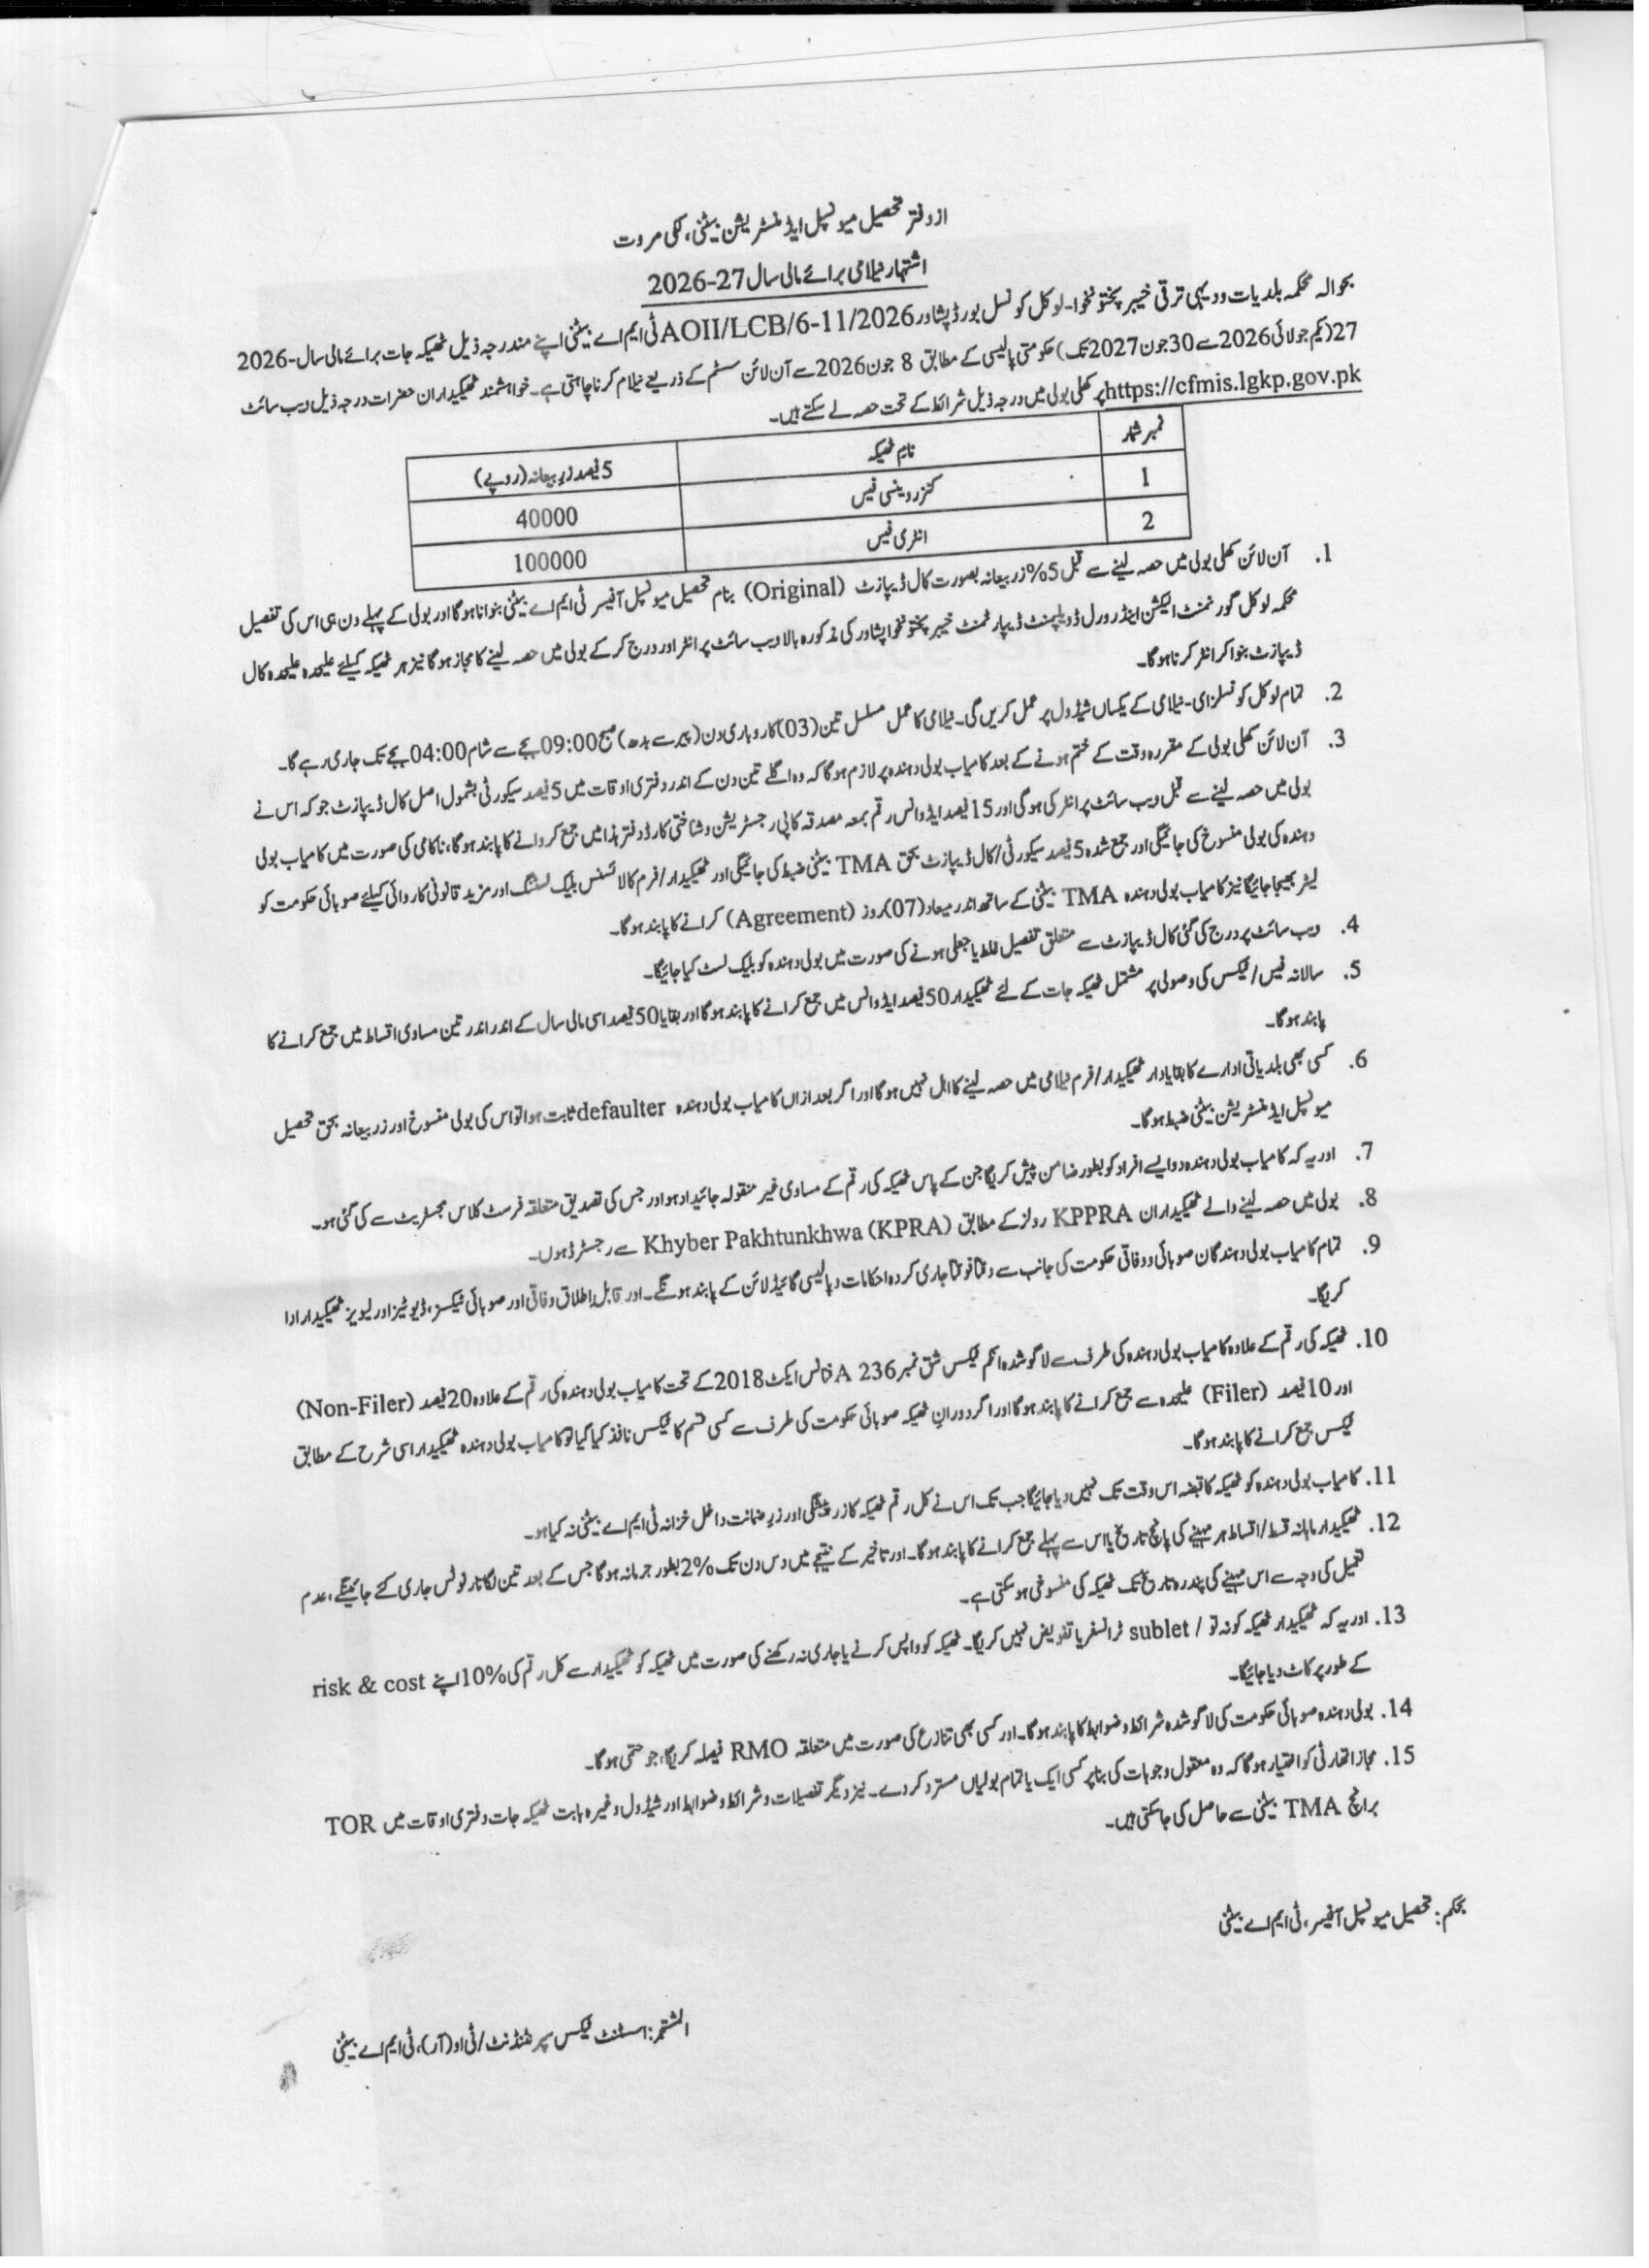 از دفتر تحصیل میونسپل ایڈمنسٹریشن بیٹنی، لکی مروت
اشتہار نیلامی برائے مالی سال 2026-27
بحوالہ محکمہ بلدیات و دیہی ترقی خیبر پختونخوا۔ لوکل کونسل بورڈ پشاور AOII/LCB/6-11/2026 ٹی ایم اے بیٹنی اپنے مندرجہ ذیل ٹھیکہ جات برائے مالی سال 2026-
27 (یکم جولائی 2026 سے 30 جون 2027 تک) حکومتی پالیسی کے مطابق 8 جون 2026 سے آن لائن سسٹم کے ذریعے نیلام کرنا چاہتی ہے۔ خواہشمند ٹھیکیداران حضرات درجہ ذیل ویب سائٹ
https://cfmis.lgkp.gov.pk پر کھلی بولی میں درجہ ذیل شرائط کے تحت حصہ لے سکتے ہیں۔
نمبر شمار نام ٹھیکہ 5 فیصد زرِ بیعانہ (روپے)
1 کنزروینسی فیس 40000
2 انٹری فیس 100000
1. آن لائن کھلی بولی میں حصہ لینے سے قبل 5% زر بیعانہ بصورت کال ڈیپازٹ (Original) بنام تحصیل میونسپل آفیسر ٹی ایم اے بیٹنی بنوانا ہوگا اور بولی کے پہلے دن ہی اس کی تفصیل
محکمہ لوکل گورنمنٹ الیکشن اینڈ رورل ڈویلپمنٹ ڈیپارٹمنٹ خیبر پختونخوا پشاور کی مذکورہ بالا ویب سائٹ پر انٹر اور درج کر کے بولی میں حصہ لینے کا مجاز ہوگا نیز ہر ٹھیکہ کیلئے علیحدہ علیحدہ کال
ڈیپازٹ بنوا کر انٹر کرنا ہوگا۔
2. تمام لوکل کونسلز ای-نیلامی کے یکساں شیڈول پر عمل کریں گی۔ نیلامی کا عمل مسلسل تین (03) کاروباری دن (پیر سے بدھ) صبح 09:00 بجے سے شام 04:00 بجے تک جاری رہے گا۔
3. آن لائن کھلی بولی کے مقررہ وقت کے ختم ہونے کے بعد کامیاب بولی دہندہ پر لازم ہوگا کہ وہ اگلے تین دن کے اندر دفتری اوقات میں 5 فیصد سیکورٹی بشمول اصل کال ڈیپازٹ جو کہ اس نے
بولی میں حصہ لینے سے قبل ویب سائٹ پر انٹر کی ہوگی اور 15 فیصد ایڈوانس رقم بمعہ مصدقہ کاپی رجسٹریشن و شناختی کارڈ دفتر ہذا میں جمع کروانے کا پابند ہوگا، ناکامی کی صورت میں کامیاب بولی
دہندہ کی بولی منسوخ کی جائیگی اور جمع شدہ 5 فیصد سیکورٹی/کال ڈیپازٹ بحق TMA بیٹنی ضبط کی جائیگی اور ٹھیکیدار/فرم کا لائسنس بلیک لسٹنگ اور مزید قانونی کاروائی کیلئے صوبائی حکومت کو
لیٹر بھیجا جائیگا نیز کامیاب بولی دہندہ TMA بیٹنی کے ساتھ اندر میعاد (07) روز (Agreement) کرانے کا پابند ہوگا۔
4. ویب سائٹ پر درج کی گئی کال ڈیپازٹ سے متعلق تفصیل غلط یا جعلی ہونے کی صورت میں بولی دہندہ کو بلیک لسٹ کیا جائیگا۔
5. سالانہ فیس/ٹیکس کی وصولی پر مشتمل ٹھیکہ جات کے لئے ٹھیکیدار 50 فیصد ایڈوانس میں جمع کرانے کا پابند ہوگا اور بقایا 50 فیصد اسی مالی سال کے اندر اندر تین مساوی اقساط میں جمع کرانے کا
پابند ہوگا۔
6. کسی بھی بلدیاتی ادارے کا بقایادار ٹھیکیدار/فرم نیلامی میں حصہ لینے کا اہل نہیں ہوگا اور اگر بعد ازاں کامیاب بولی دہندہ defaulter ثابت ہوا تو اس کی بولی منسوخ اور زر بیعانہ بحق تحصیل
میونسپل ایڈمنسٹریشن بیٹنی ضبط ہوگا۔
7. اور یہ کہ کامیاب بولی دہندہ دو ایسے افراد کو بطور ضامن پیش کریگا جن کے پاس ٹھیکہ کی رقم کے مساوی غیر منقولہ جائیداد ہو اور جس کی تصدیق متعلقہ فرسٹ کلاس مجسٹریٹ سے کی گئی ہو۔
8. بولی میں حصہ لینے والے ٹھیکیداران KPPRA رولز کے مطابق Khyber Pakhtunkhwa (KPRA) سے رجسٹرڈ ہوں۔
9. تمام کامیاب بولی دہندگان صوبائی و وفاقی حکومت کی جانب سے وقتاً فوقتاً جاری کردہ احکامات و پالیسی گائیڈ لائن کے پابند ہونگے۔ اور قابل اطلاق وفاقی اور صوبائی ٹیکسز، ڈیوٹیز اور لیویز ٹھیکیدار ادا
کریگا۔
10. ٹھیکہ کی رقم کے علاوہ کامیاب بولی دہندہ کی طرف سے لاگو شدہ انکم ٹیکس شق نمبر 236 A فنانس ایکٹ 2018 کے تحت کامیاب بولی دہندہ کی رقم کے علاوہ 20 فیصد (Non-Filer)
اور 10 فیصد (Filer) علیحدہ سے جمع کرانے کا پابند ہوگا اور اگر دورانِ ٹھیکہ صوبائی حکومت کی طرف سے کسی قسم کا ٹیکس نافذ کیا گیا تو کامیاب بولی دہندہ ٹھیکیدار اسی شرح کے مطابق
ٹیکس جمع کرانے کا پابند ہوگا۔
11. کامیاب بولی دہندہ کو ٹھیکہ کا قبضہ اس وقت تک نہیں دیا جائیگا جب تک اس نے کل رقم ٹھیکہ کا زر پیشگی اور زرِ ضمانت داخل خزانہ ٹی ایم اے بیٹنی نہ کیا ہو۔
12. ٹھیکیدار ماہانہ قسط/اقساط ہر مہینے کی پانچ تاریخ یا اس سے پہلے جمع کرانے کا پابند ہوگا۔ اور تاخیر کے نتیجے میں دس دن تک 2% بطور جرمانہ ہوگا جس کے بعد تین لگاتار نوٹس جاری کئے جائینگے، عدم
تعمیل کی وجہ سے اس مہینے کی پندرہ تاریخ تک ٹھیکہ کی منسوخی ہو سکتی ہے۔
13. اور یہ کہ ٹھیکیدار ٹھیکہ کو نہ تو / sublet ٹرانسفر یا تفویض نہیں کریگا۔ ٹھیکہ کو واپس کرنے یا جاری نہ رکھنے کی صورت میں ٹھیکہ کو ٹھیکیدار سے کل رقم کی 10% اپنے risk & cost
کے طور پر کاٹ دیا جائیگا۔
14. بولی دہندہ صوبائی حکومت کی لاگو شدہ شرائط و ضوابط کا پابند ہوگا۔ اور کسی بھی تنازع کی صورت میں متعلقہ RMO فیصلہ کریگا، جو حتمی ہوگا۔
15. مجاز اتھارٹی کو اختیار ہوگا کہ وہ معقول وجوہات کی بنا پر کسی ایک یا تمام بولیاں مسترد کر دے۔ نیز دیگر تفصیلات و شرائط و ضوابط اور شیڈول وغیرہ بابت ٹھیکہ جات دفتری اوقات میں TOR
برانچ TMA بیٹنی سے حاصل کی جا سکتی ہیں۔
بحکم: تحصیل میونسپل آفیسر، ٹی ایم اے بیٹنی
المشتہر: اسسٹنٹ ٹیکس سپرنٹنڈنٹ/ٹی او (آر)، ٹی ایم اے بیٹنی